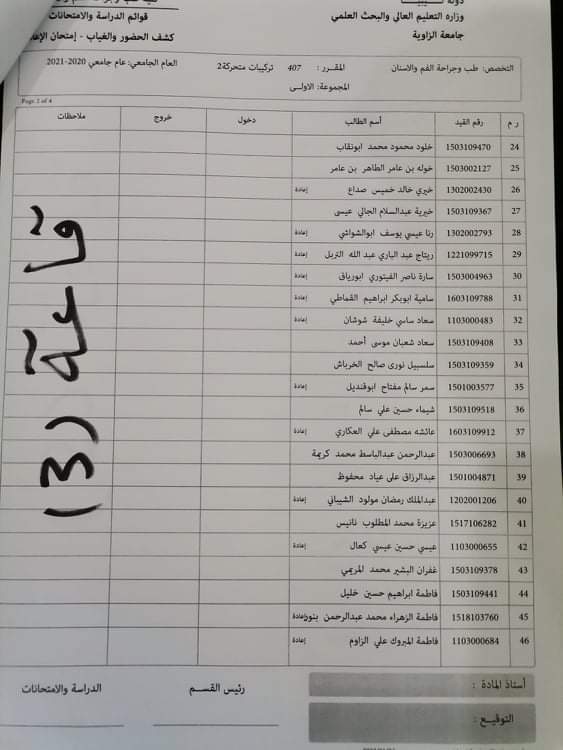 دولة ليبيا
وزاره التعليم العالي والبحث العلمي
جامعة الزاوية
قوائم الدراسة والامتحانات
كشف الحضور والغياب - إمتحان
التخصص: طب وجراحة الفم والاسنان
المقــرر : 407 تركيبات متحركة2
العام الجامعي: عام جامعي 2020-2021
المجموعة: الاولـى
Page 2 of 4
ر م رقم القيد أسم الطالب دخول خروج ملاحظات
24 1503109470 خلود محمود محمد ابونقاب
25 1503002127 خوله بن عامر الطاهر بن عامر
26 1302002430 خيري خالد خميس صداع إعادة
27 1503109367 خيرية عبدالسلام الجالي عيسى
28 1302002793 رنا عيسي يوسف ابوالشواشي إعادة
29 1221099715 ريتاج عبد الباري عبد الله التريل إعادة
30 1503004963 سارة ناصر الفيتوري ابورياق إعادة
31 1603109788 سامية ابوبكر ابراهيم القماطي إعادة
32 1103000483 سعاد ساسي خليفة شوشان إعادة
33 1503109408 سعاد شعبان موسى أحمد
34 1503109359 سلسبيل نورى صالح الخرباش
35 1501003577 سمر سالم مفتاح ابوقنديل إعادة
36 1503109518 شيماء حسين علي سالم
37 1603109912 عائشه مصطفى علي العكاري إعادة
38 1503006693 عبدالرحمن عبدالباسط محمد كريمة
39 1501004871 عبدالرزاق على عياد محفوظ
40 1202001206 عبدالملك رمضان مولود الشيباني إعادة
41 1517106282 عزيزة محمد المطلوب نانيس
42 1103000655 عيسي حسين عيسي كعال إعادة
43 1503109378 غفران البشير محمد المريمي
44 1503109441 فاطمة ابراهيم حسين خليل
45 1518103760 فاطمة الزهراء محمد عبدالرحمن بنور إعادة
46 1103000684 فاطمة المبروك علي الزاوم إعادة
(3)
أستاذ المادة :
التوقيع :
رئيس القســم
الدراسة والامتحانات